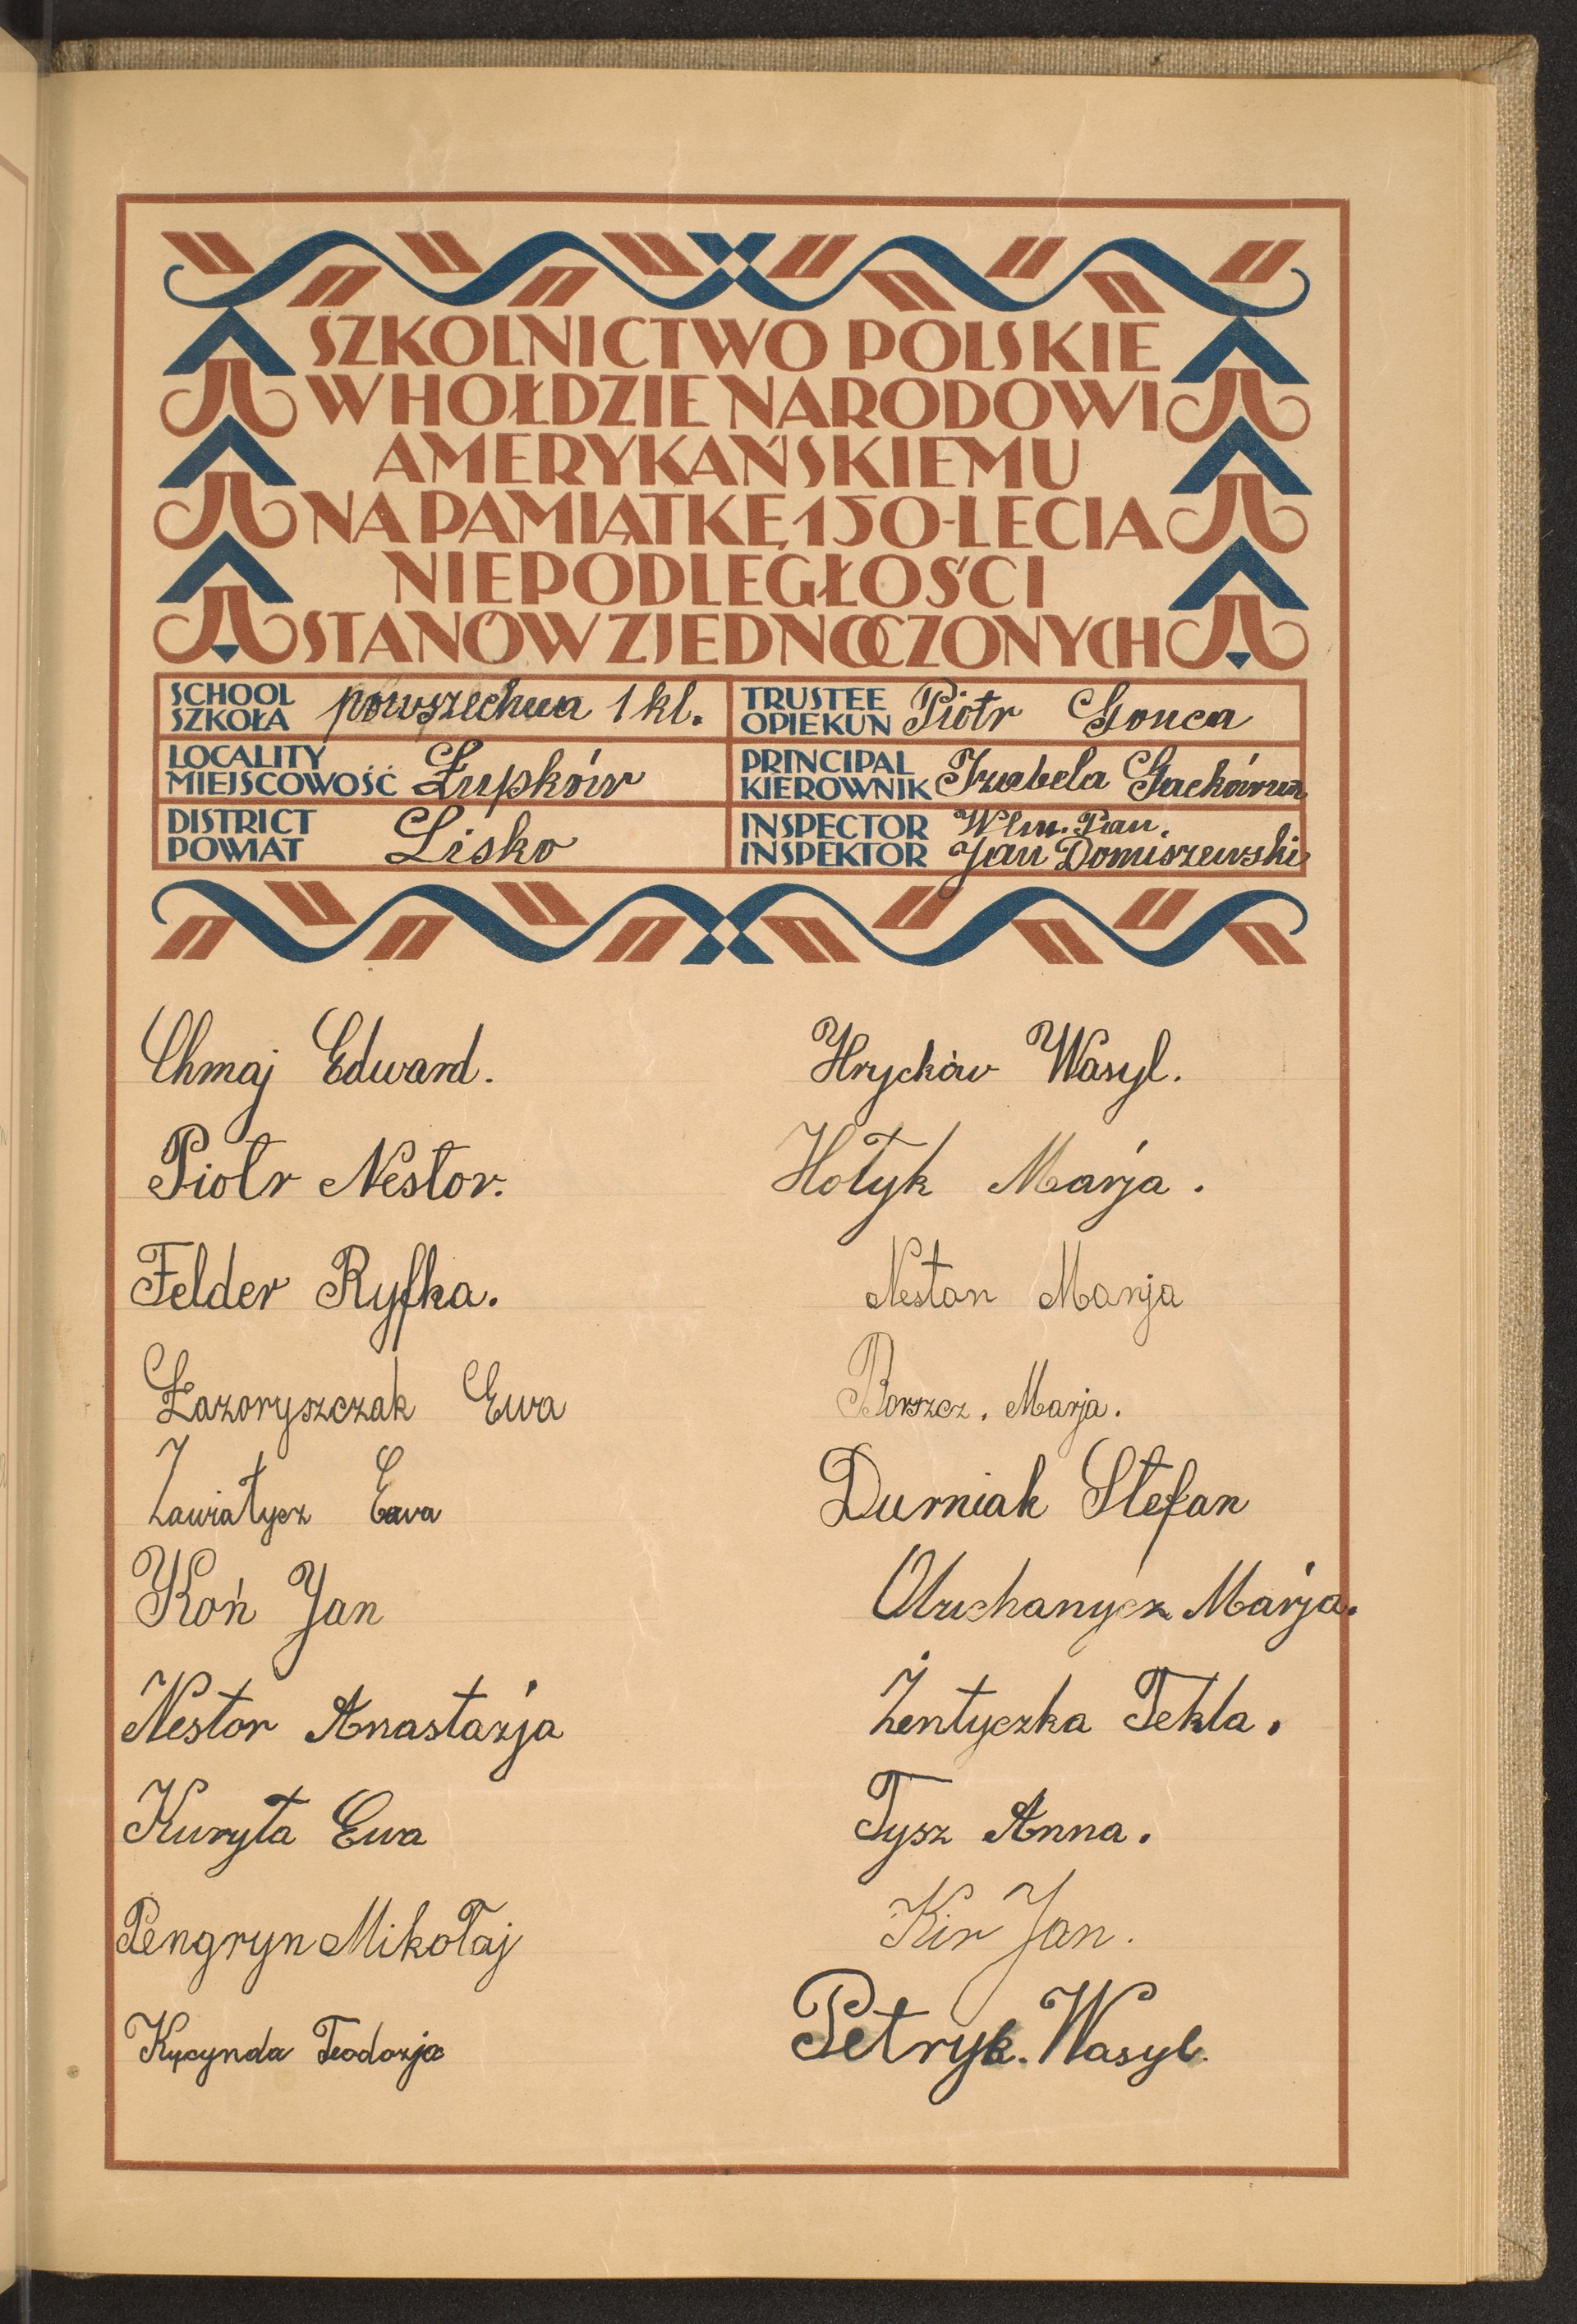 SZKOLNICTWO POLSKIE
W HOŁDZIE NARODOWI
AMERYKAŃSKIEMU
NA PAMIĄTKĘ 150-LECIA
NIEPODLEGŁOŚCI
STANÓW ZJEDNOCZONYCH
SCHOOL
SZKOŁA powszechna 1 kl.
TRUSTEE
OPIEKUN Piotr Gonca
LOCALITY
MIEJSCOWOŚĆ Łupków
PRINCIPAL
KIEROWNIK Izabela Gackówna
DISTRICT
POWIAT Lisko
INSPECTOR Wlm. Pan.
INSPEKTOR Jan Domiszewski
Chmaj Edward.
Piotr Nestor.
Felder Ryfka.
Łazoryszczak Ewa
Zawiatycz Ewa
Koń Jan
Nestor Anastazja
Kuryła Ewa
Pengryn Mikołaj
Kycynda Teodozja
Hrycków Wasyl.
Hołyk Marja.
Nestor Marja
Borszcz. Marja.
Durniak Stefan
Marja.
Żentyczka Tekla.
Tysz Anna.
Kir Jan.
Petryk. Wasyl.